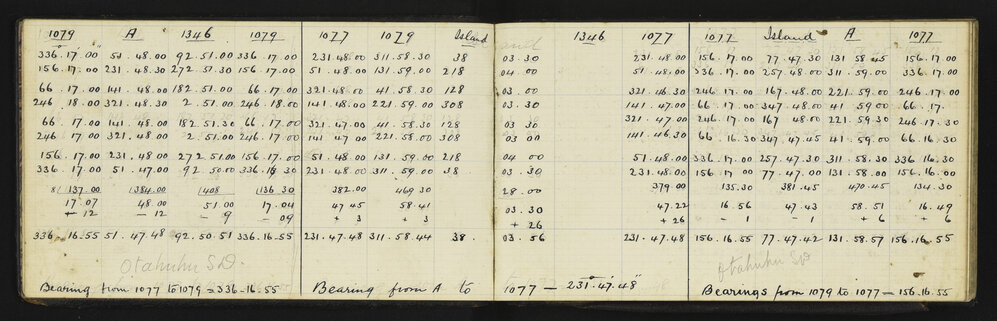 1079 A 1346 1079 1077 1079 Island 1346 1077 1077 Island A 1077
336.17.00 51.48.00 92.51.00 336.17.00 231.48.00 311.58.30 38 03.30 231.48.00 156.17.00 77.47.30 131.58.45 156.17.00
156.17.00 231.48.30 272.51.30 156.17.00 51.48.00 131.59.00 218 04.00 51.48.00 336.17.00 257.48.00 311.59.00 336.17.00
66.17.00 141.48.00 182.51.00 66.17.00 321.48.00 41.58.30 128 03.00 321.46.30 246.17.00 167.48.00 221.59.00 246.17.00
246.18.00 321.48.30 2.51.00 246.18.00 141.48.00 221.59.00 308 03.30 141.47.00 66.17.00 347.48.00 41.59.00 66.17.
66.17.00 141.48.00 182.51.30 66.17.00 321.47.00 41.58.30 128 03.30 321.47.00 246.17.00 167.48.00 221.59.30 246.17.30
246.17.00 321.48.00 2.51.00 246.17.00 141.47.00 221.58.00 308 03.00 141.46.30 66.16.30 347.47.45 41.59.00 66.16.30
156.17.00 231.48.00 272.51.00 156.17.00 51.48.00 131.59.00 218 04.00 51.48.00 336.17.00 257.47.30 311.58.30 336.16.30
336.17.00 51.47.00 92.50.00 336.16.30 231.48.00 311.59.00 38. 03.30 231.48.00 156.17.00 77.47.00 131.58.00 156.16.00
8/137.00 1384.00 1408 136.30 382.00 469.30 28.00 379.00 135.30 381.45 470.45 134.30
17.07 48.00 51.00 17.04 47.45 58.41 03.30 47.22 16.56 47.43 58.51 16.49
-12 -12 -9 -09 +3 +3 +26 +26 -1 -1 +6 +6
336-16-55 51.47.48 92.50.51 336.16.55 231.47.48 311.58.44 38. 03.56 231.47.48 156.16.55 77.47.42 131.58.57 156.16.55
Otahuhu SD Otahuhu SD
Bearing from 1077 to 1079 = 336-16-55 Bearing from A to 1077 — 231.47.48 Bearings from 1079 to 1077 — 156.16.55